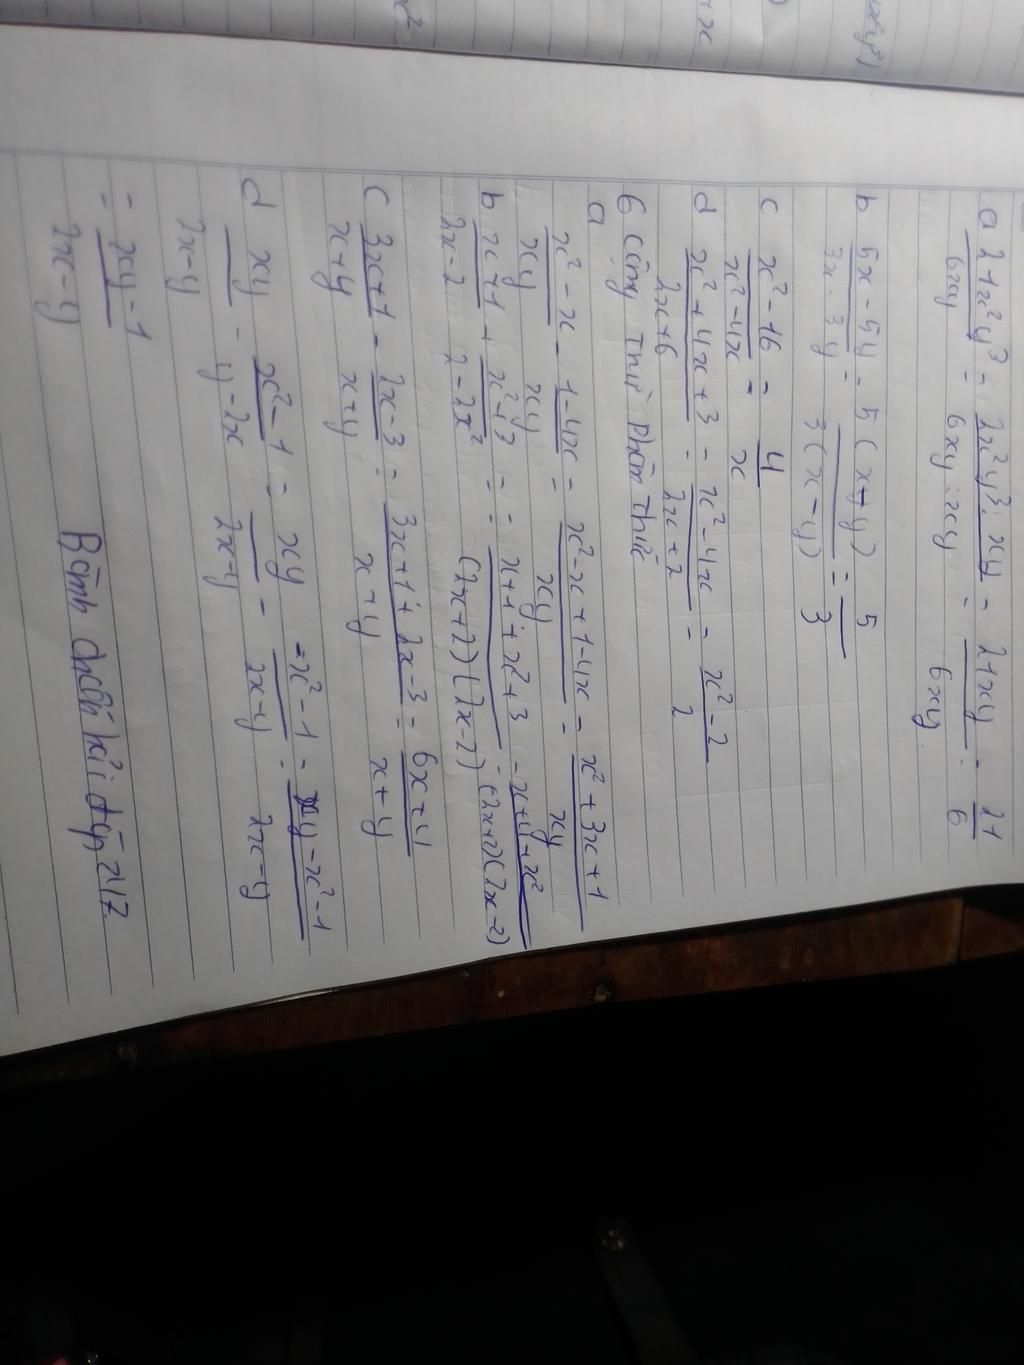 a 21x²y³ / 6xy = 21x²y³ : xy / 6xy : xy = 21xy / 6xy = 21 / 6
b 5x - 5y / 3x - 3y = 5(x + y) / 3(x - y) = 5 / 3
c x² - 16 / x² - 4x = 4 / x
d x² + 4x + 3 / 2x + 6 = x² - 4x / 2x + 2 = x² - 2 / 2
6 Cộng trừ phân thức
a
x² - x / xy - 1 - 4x / xy = x² - x + 1 - 4x / xy = x² + 3x + 1 / xy
b x + 1 / 2x - 2 + x² + 3 / 2 - 2x² = = x + 1 + x² + 3 / (2x + 2)(2x - 2) = x + 4 + x² / (2x + 2)(2x - 2)
c 3x + 1 / x + y - 2x - 3 / x + y = 3x + 1 + 2x - 3 / x + y = 6x + 4 / x + y
d xy / 2x - y - x² - 1 / y - 2x = xy / 2x - y - = x² - 1 / 2x - y = xy - x² - 1 / 2x - y
= xy - 1 / 2x - y